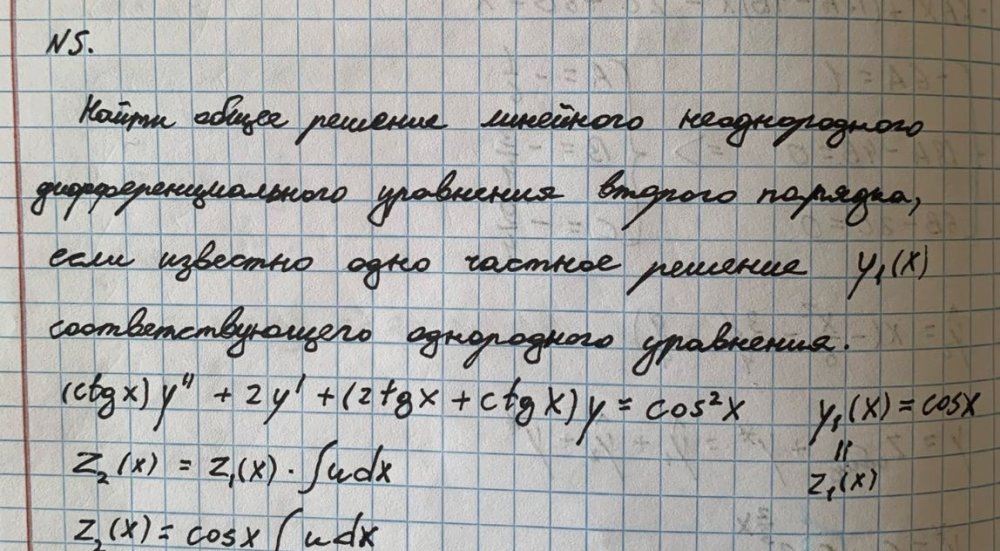 N5.
Найти общее решение линейного неоднородного
дифференциального уравнения второго порядка,
если известно одно частное решение y₁(x)
соответствующего однородного уравнения.
(ctg x) y'' + 2y' + (2tg x + ctg x) y = cos²x y₁(x) = cos x
z₂(x) = z₁(x) · ∫ u dx || z₁(x)
z₂(x) = cos x ∫ u dx